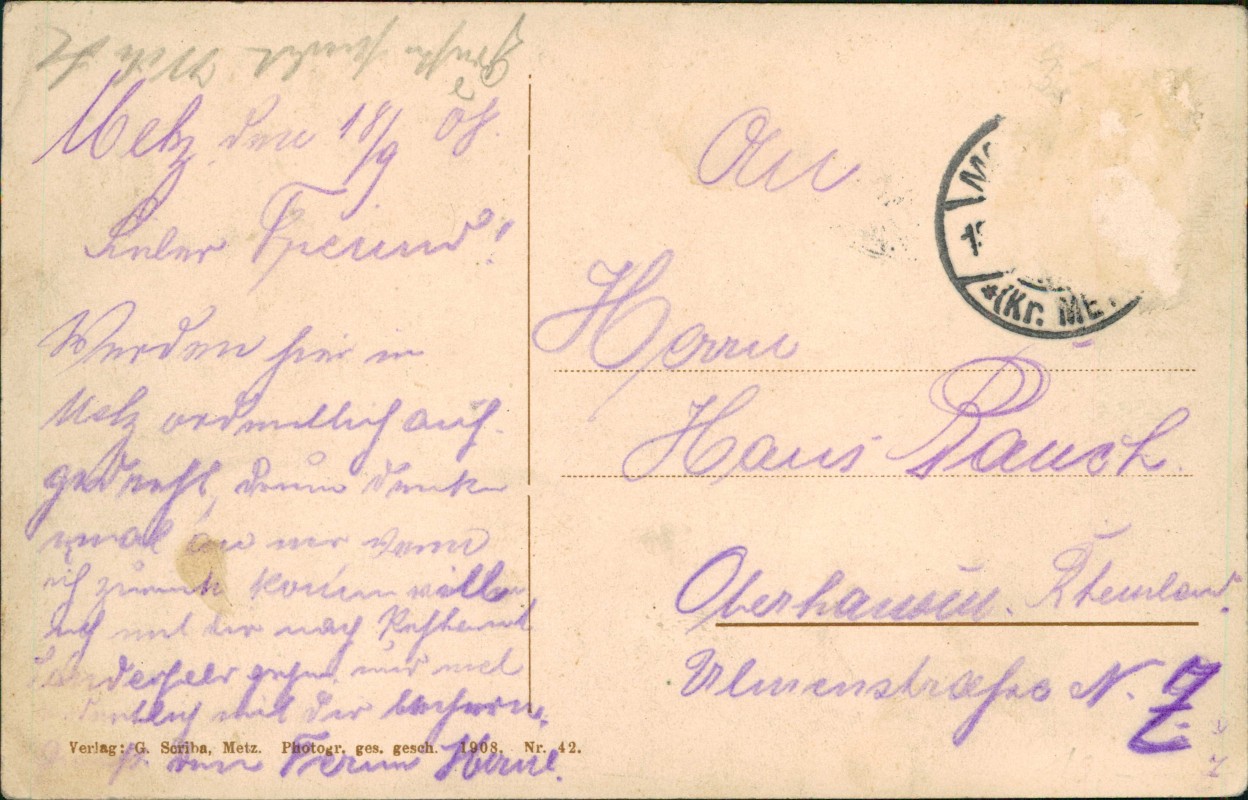 Metz den 18/9 08.
Lieber Freund!
Werden hier in
Metz ordentlich auf-
gedreht, drum denke
mal an mir wenn
ich zurück komm will
ich mit dir nach
gehen, und mal
ordentlich mit dir
den Freund
Verlag: G. Scriba, Metz. Photogr. ges. gesch. 1908. Nr. 42.
An
Herrn
Hans Rausch.
Oberhausen. Rheinland.
Ulmenstraße N. 7
*(Kr. ME